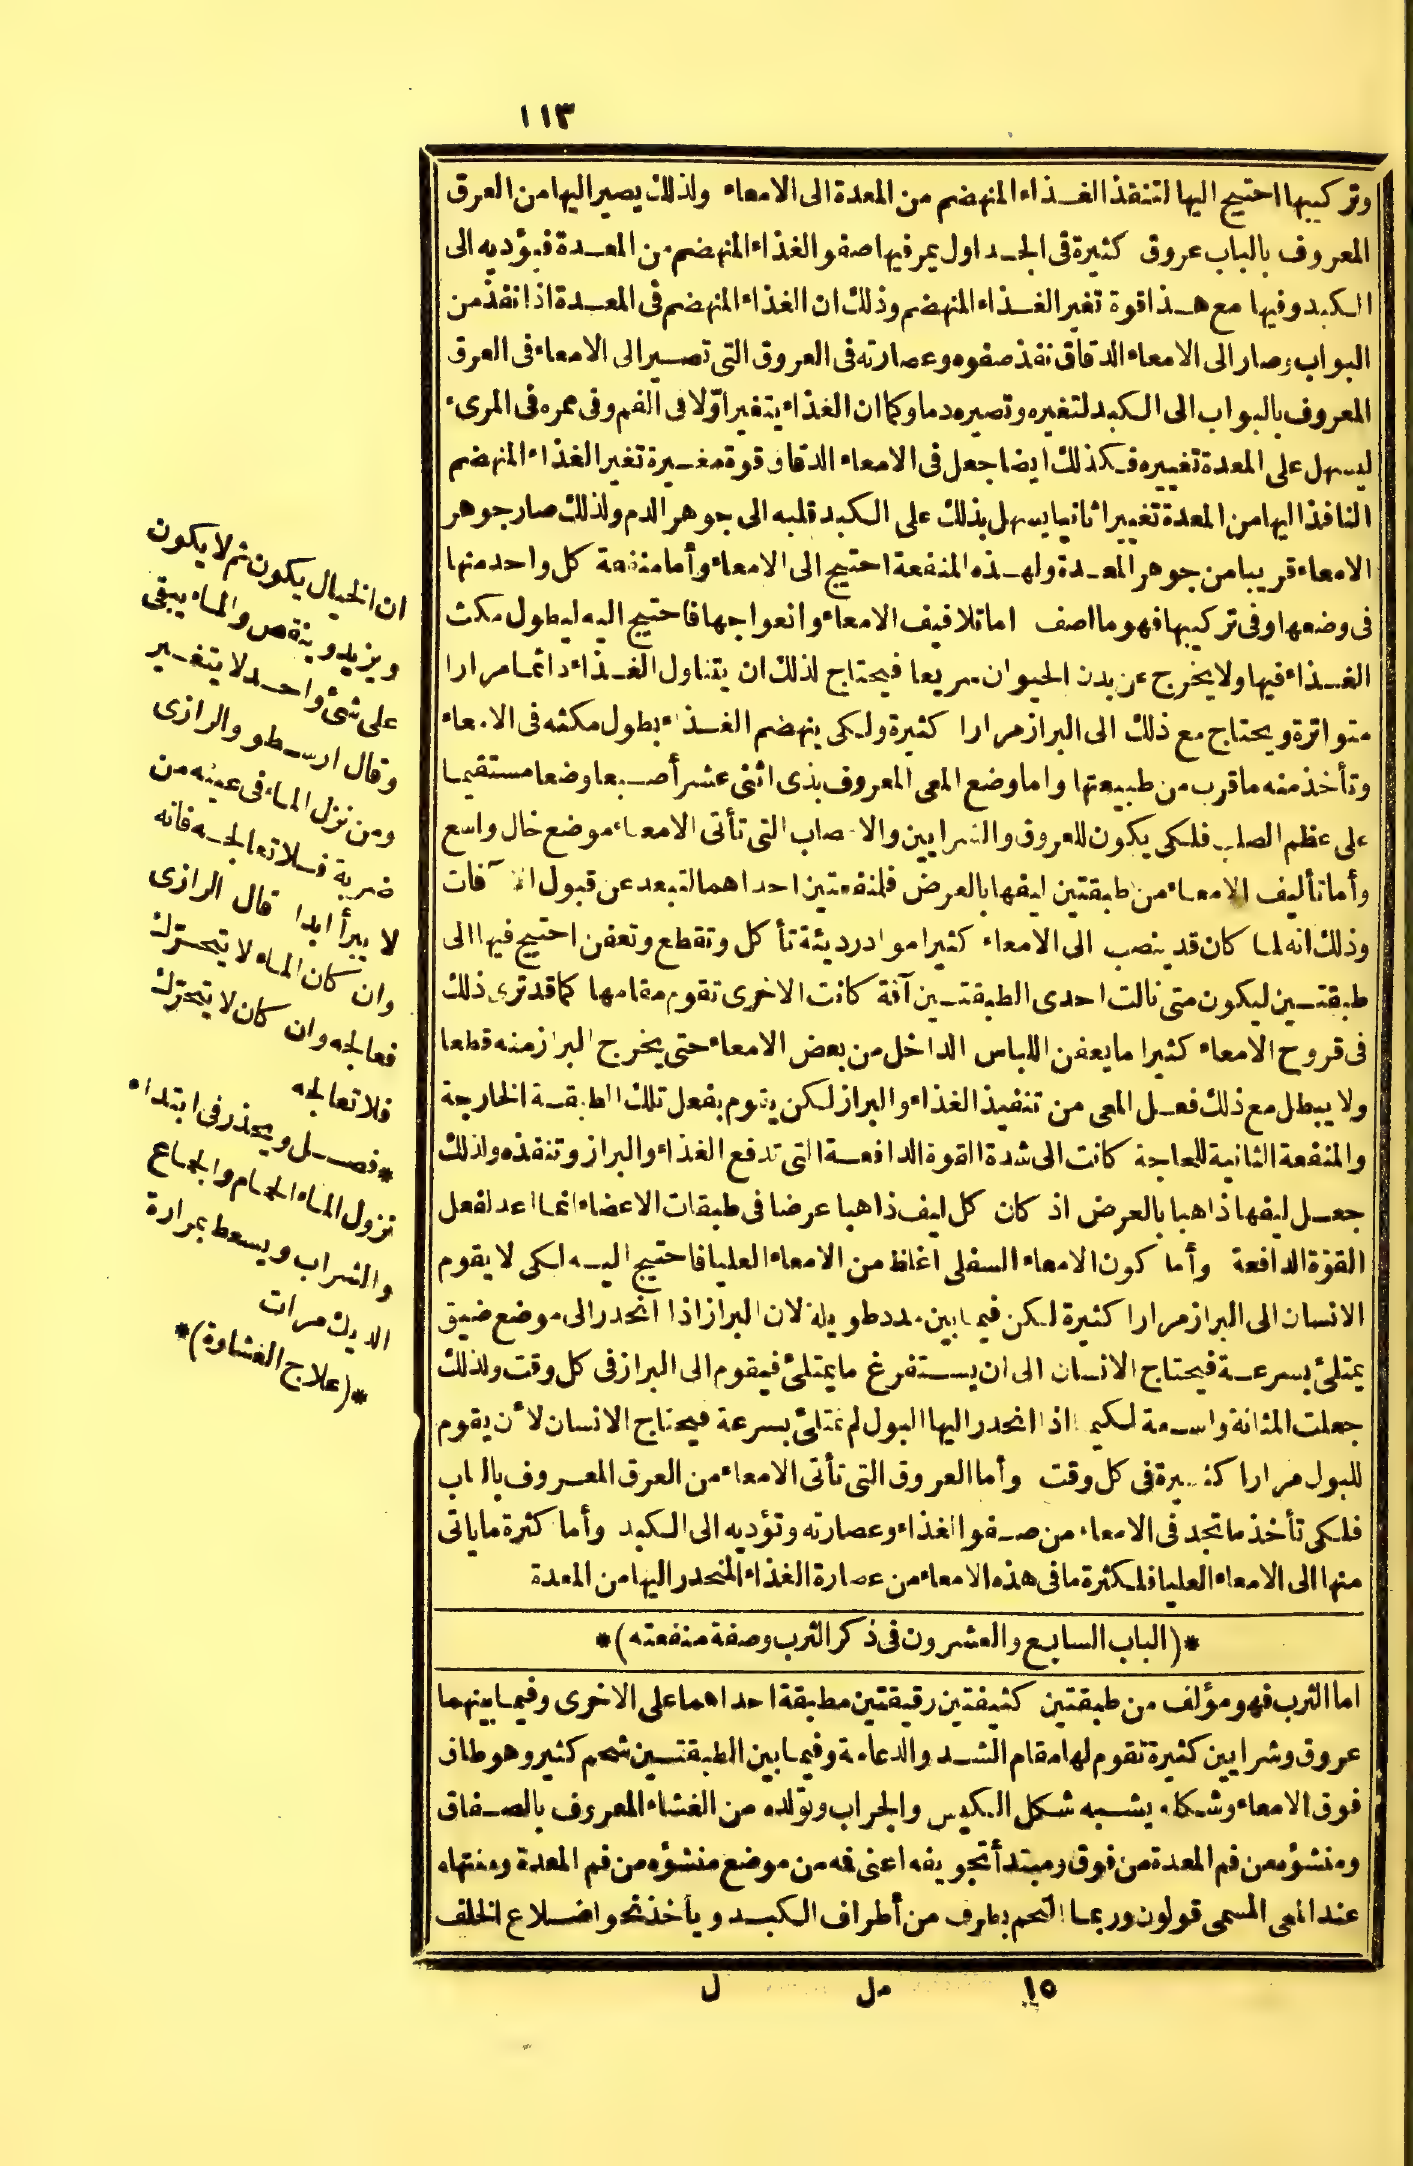 ١١٣
وتركيبها احتيج اليها لتنفذ الغذاء المنهضم من المعدة الى الامعاء ولذلك يصير اليها من العرق
المعروف بالباب عروق كثيرة فى الجداول يمر فيها صفو الغذاء المنهضم من المعدة فيؤديه الى
الكبد وفيها مع هذا قوة تغير الغذاء المنهضم وذلك ان الغذاء المنهضم فى المعدة اذا نفذ من
البواب وصار الى الامعاء الدقاق نفذ صفوه وعصارته فى العروق التى تصير الى الامعاء فى العرق
المعروف بالبواب الى الكبد لتغيره وتصيره دما وكما ان الغذاء يتغير اوّلا فى الفم وفى ممره فى المرىء
ليسهل على المعدة تغييره فكذلك ايضا جعل فى الامعاء الدقاق قوة مغيرة تغير الغذاء المنهضم
النافذ اليها من المعدة تغييرا ثانيا يسهل بذلك على الكبد قلبه الى جوهر الدم ولذلك صار جوهر
الامعاء قريبا من جوهر المعدة ولهذه المنفعة احتيج الى الامعاء وأما منفعة كل واحد منها
فى وضعها وفى تركيبها فهو ما اصف اما تلافيف الامعاء وانعواجها فاحتيج اليه ليطول مكث
الغذاء فيها ولا يخرج عن بدن الحيوان سريعا فيحتاج لذلك ان يتناول الغذاء دائما مرارا
متواترة ويحتاج مع ذلك الى البراز مرارا كثيرة ولكى ينهضم الغذاء بطول مكثه فى الامعاء
وتأخذ منه ما قرب من طبيعتها واما وضع المعى المعروف بذى اثنى عشر أصبعا وضعا مستقيما
على عظم الصلب فلكى يكون للعروق والشرايين والاعصاب التى تأتى الامعاء موضع خال واسع
وأما تأليف الامعاء من طبقتين ليفها بالعرض فلمنفعتين احداهما لتبعد عن قبول الآفات
وذلك انه لما كان قد ينصب الى الامعاء كثيرا مواد رديئة تأكل وتقطع وتعفن احتيج فيها الى
طبقتين ليكون متى نالت احدى الطبقتين آفة كانت الاخرى تقوم مقامها كما قد ترى ذلك
فى قروح الامعاء كثيرا ما يعفن اللباس الداخل من بعض الامعاء حتى يخرج البراز منه قطعا
ولا يبطل مع ذلك فعل المعى من تنفيذ الغذاء والبراز لكن يقوم بفعل تلك الطبقة الخارجة
والمنفعة الثانية للحاجة كانت الى شدة القوة الدافعة التى تدفع الغذاء والبراز وتنفذه ولذلك
جعل ليفها ذاهبا بالعرض اذ كان كل ليف ذاهبا عرضا فى طبقات الاعضاء انما اعد لفعل
القوّة الدافعة وأما كون الامعاء السفلى اغلظ من الامعاء العليا فاحتيج اليه لكى لا يقوم
الانسان الى البراز مرارا كثيرة لكن فيما بين مدد طويلة لان البراز اذا انحدر الى موضع ضيق
يمتلئ بسرعة فيحتاج الانسان الى ان يستفرغ ما يمتلئ فيقوم الى البراز فى كل وقت ولذلك
جعلت المثانة واسعة لكيما اذا انحدر اليها البول لم تمتلئ بسرعة فيحتاج الانسان لأن يقوم
للبول مرارا كثيرة فى كل وقت وأما العروق التى تأتى الامعاء من العرق المعروف بالباب
فلكى تأخذ ما تجد فى الامعاء من صفو الغذاء وعصارته وتؤديه الى الكبد وأما كثرة ما ياتى
منها الى الامعاء العليا فلكثرة ما فى هذه الامعاء من عصارة الغذاء المنحدر اليها من المعدة
*(الباب السابع والعشرون فى ذكر الثرب وصفة منفعته)*
اما الثرب فهو مؤلف من طبقتين كثيفتين رقيقتين مطبقة احداهما على الاخرى وفيما بينهما
عروق وشرايين كثيرة تقوم لها مقام الشد والدعامة وفيما بين الطبقتين شحم كثير وهو طاف
فوق الامعاء وشكله يشبه شكل الكيس والجراب وتولده من الغشاء المعروف بالصفاق
ومنشؤه من فم المعدة من فوق ومبتدأ تجويفه اعنى فمه من موضع منشؤه من فم المعدة ومنتهاه
عند المعى المسمى قولون وربما التحم بطرف من أطراف الكبد ويأخذ نحو اضلاع الخلف
١٥ مل ل
ان الخيال يكون ثم لا يكون
ويزيد وينقص والماء يبقى
على شئ واحد لا يتغير
وقال ارسطو والرازى
ومن نزل الماء فى عينه من
ضربة فلا تعالجه فانه
لا يبرأ ابدا قال الرازى
وان كان الماء لا يتحرّك
فعالجه وان كان لا يتحرّك
فلا تعالجه
*فصل ويحذر فى ابتداء
نزول الماء الحمام والجماع
والشراب ويسعط بمرارة
الديك مرات
*(علاج الغشاوة)*